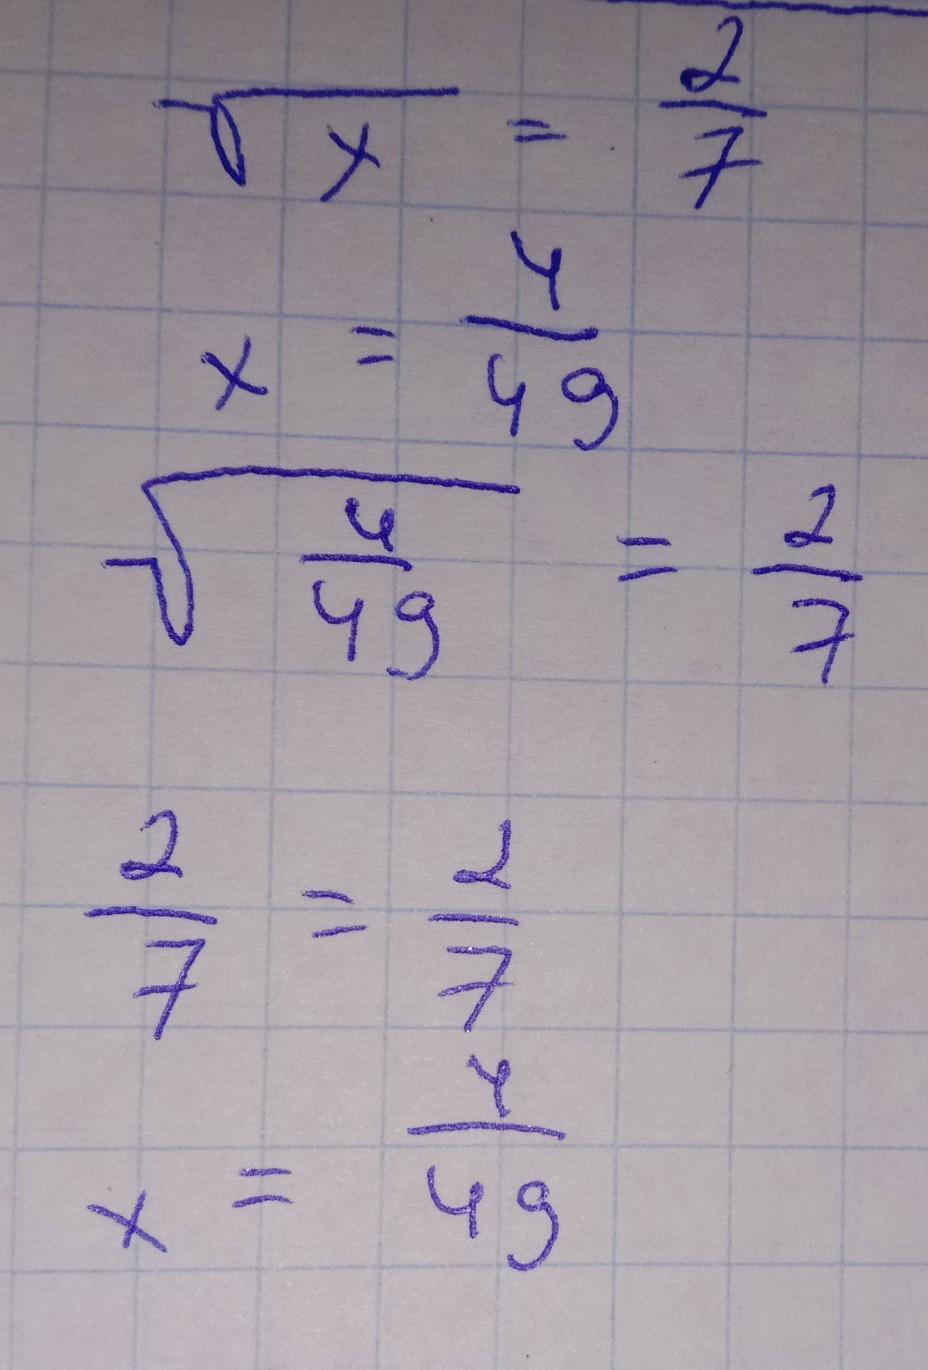 √x = 2/7
x = 4/49
√(4/49) = 2/7
2/7 = 2/7
x = 4/49